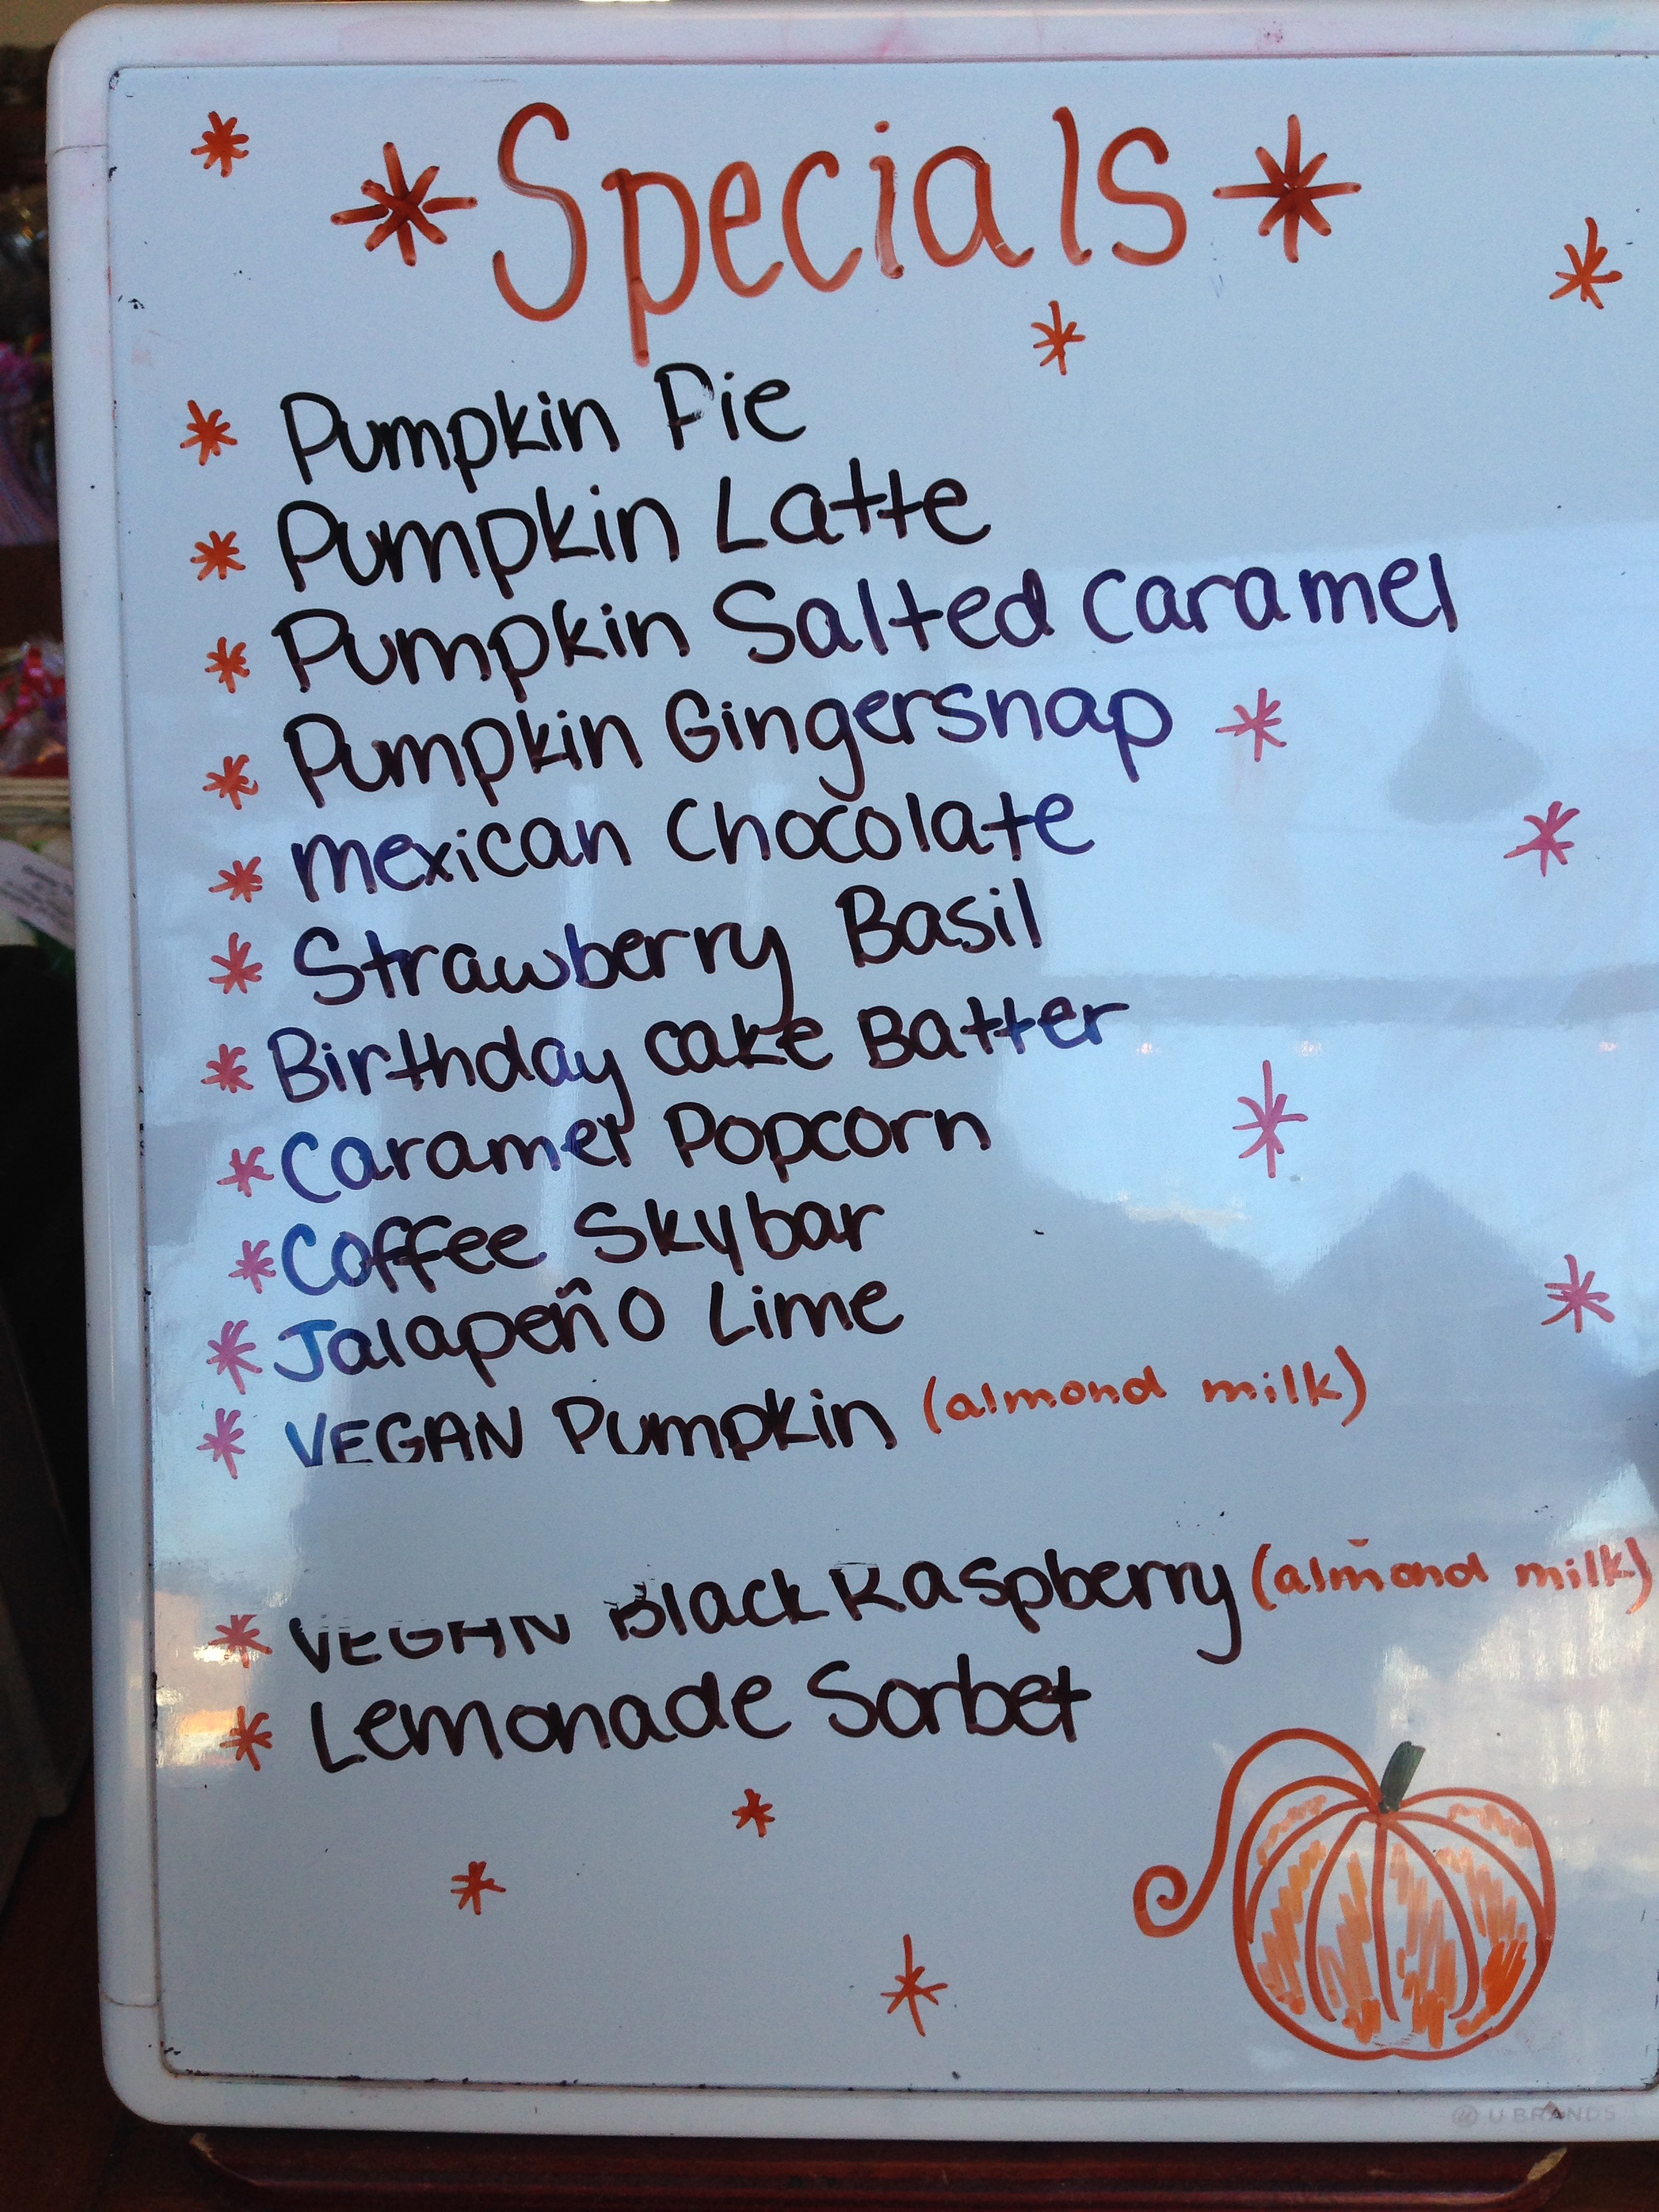 *Specials*
* Pumpkin Pie
* Pumpkin Latte
* Pumpkin Salted Caramel
* Pumpkin Gingersnap
* mexican Chocolate
* Strawberry Basil
* Birthday cake Batter
* Caramel Popcorn
* Coffee Skybar
* Jalapeño Lime
* VEGAN Pumpkin (almond milk)
* VEGAN Black Raspberry (almond milk)
* Lemonade Sorbet
U BRANDS